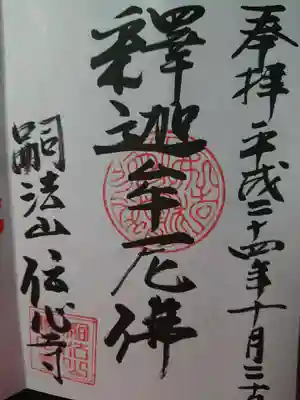 奉拝 平成二十四年十月二
釋迦牟尼佛
嗣法山 伝心寺